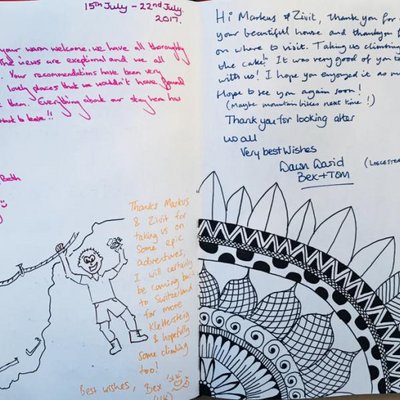 15th July - 22nd July
2017.
your warm welcome. we have all thoroughly
views are exeptional and we all
. Your recommendations have been very
lovely places that we wouldn't have found
them. Everything about our stay here has
to leave!!
Thanks Markus
& Zivit for
taking us on
some epic
adventures,
I will certainly
be coming back
to Switzerland
for more
Klettersteig
& hopefully
some climbing
too!
Best wishes, Bex
(UK)
Hi Markus & Zivit, Thank you for
your beautiful house and thankyou f
on where to visit. Taking us climbing
the cake! It was very good of you to
with us! I hope you enjoyed it as mu
Hope to see you again soon!
(Maybe mountain bikes next time!)
Thank you for looking after
us all
Very best wishes
Dawn David (Leicester
Bex + Tom